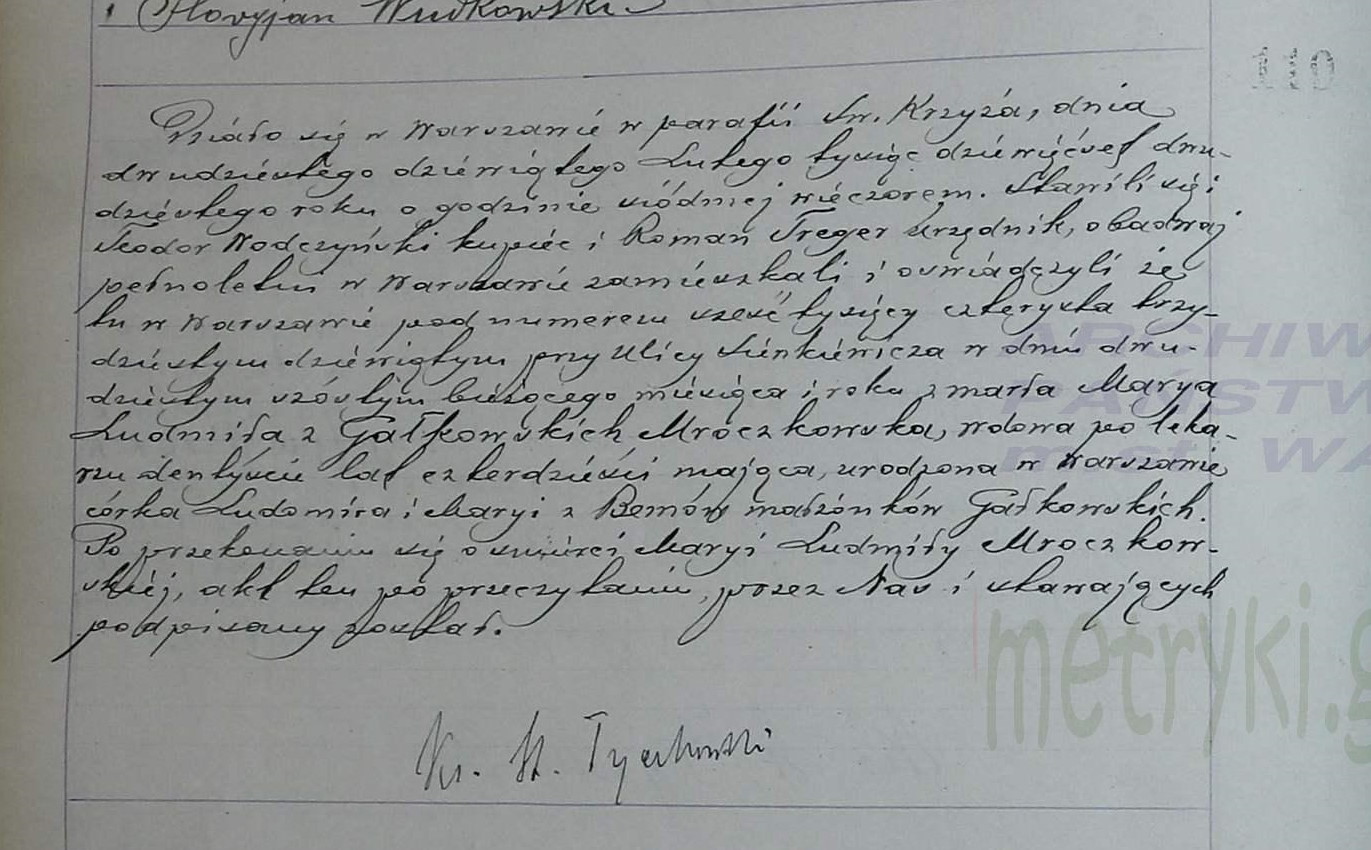 Floryjan Wudkowski
110
Działo się w Warszawie w parafii Św. Krzyża, dnia
dwudziestego dziewiątego Lutego tysiąc dziewięćset dwu-
dziestego roku o godzinie siódmej wieczorem. Stawili się:
Teodor Wodczyński kupiec i Roman Treger urzędnik, obadwaj
pełnoletni w Warszawie zamieszkali i oświadczyli że
tu w Warszawie pod numerem sześć tysięcy czterysta trzy-
dziestym dziewiątym przy Ulicy Sienkiewicza w dniu dwu-
dziestym szóstym bieżącego miesiąca i roku zmarła Marya
Ludmiła z Gałkowskich Mroczkowska, wdowa po leka-
rzu dentyście lat czterdzieści mająca, urodzona w Warszawie
córka Ludomira i Maryi z Bemów małżonków Gałkowskich.
Po przekonaniu się o śmierci Maryi Ludmiły Mroczkow-
skiej, akt ten po przeczytaniu, przez Nas i stawających
podpisany został.
Ks. St. Tyszkowski
ARCHIW
PAŃSTW
miast. WA
metryki.g